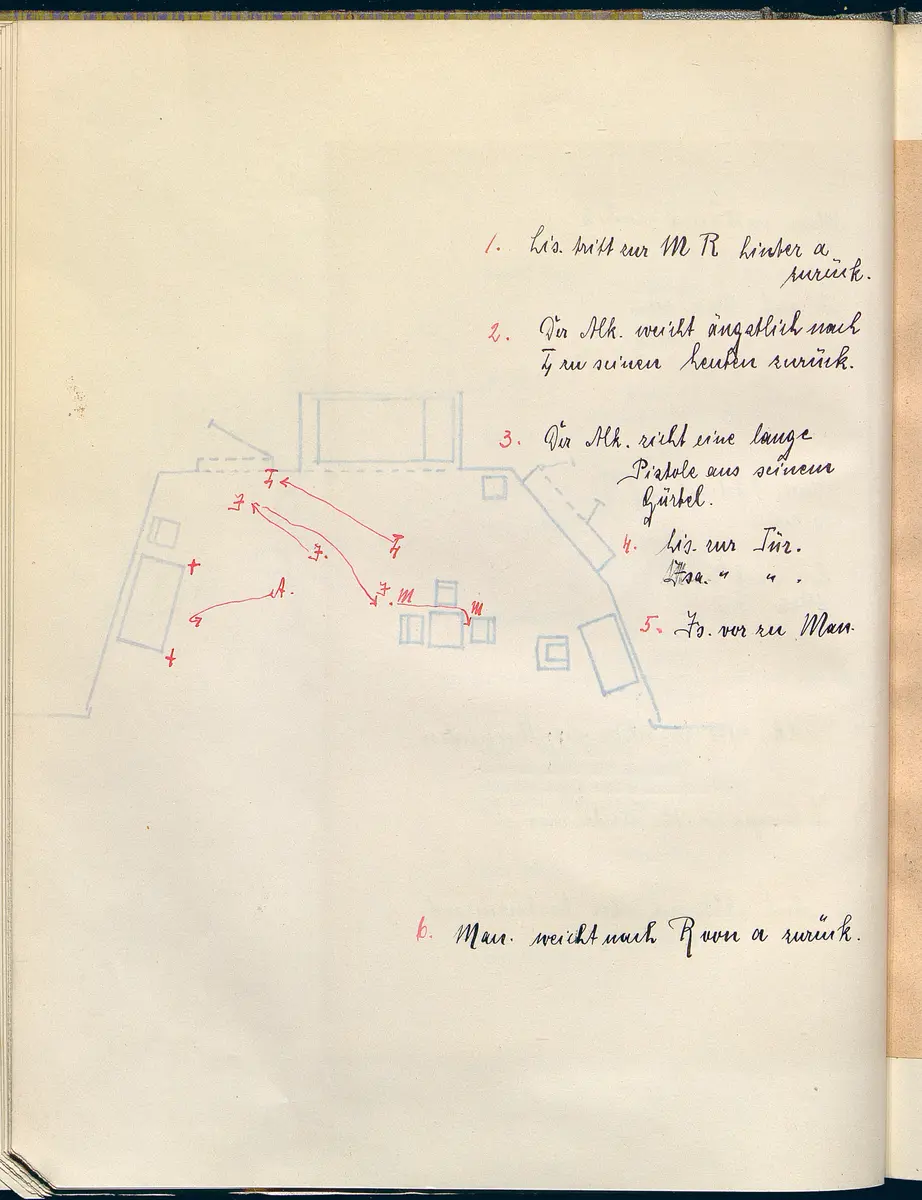 1. Lis. tritt zur M R hinter a
zurück.
2. Der Alk. weicht ängstlich nach
L zu seinen Leuten zurück.
3. Der Alk. zieht eine lange
Pistole aus seinem
Gürtel.
4. Lis. zur Tür.
Isa. " " .
L
J
L
J.
A.
J. M
M
5. Is. vor zu Man.
6. Man. weicht nach R von a zurück.